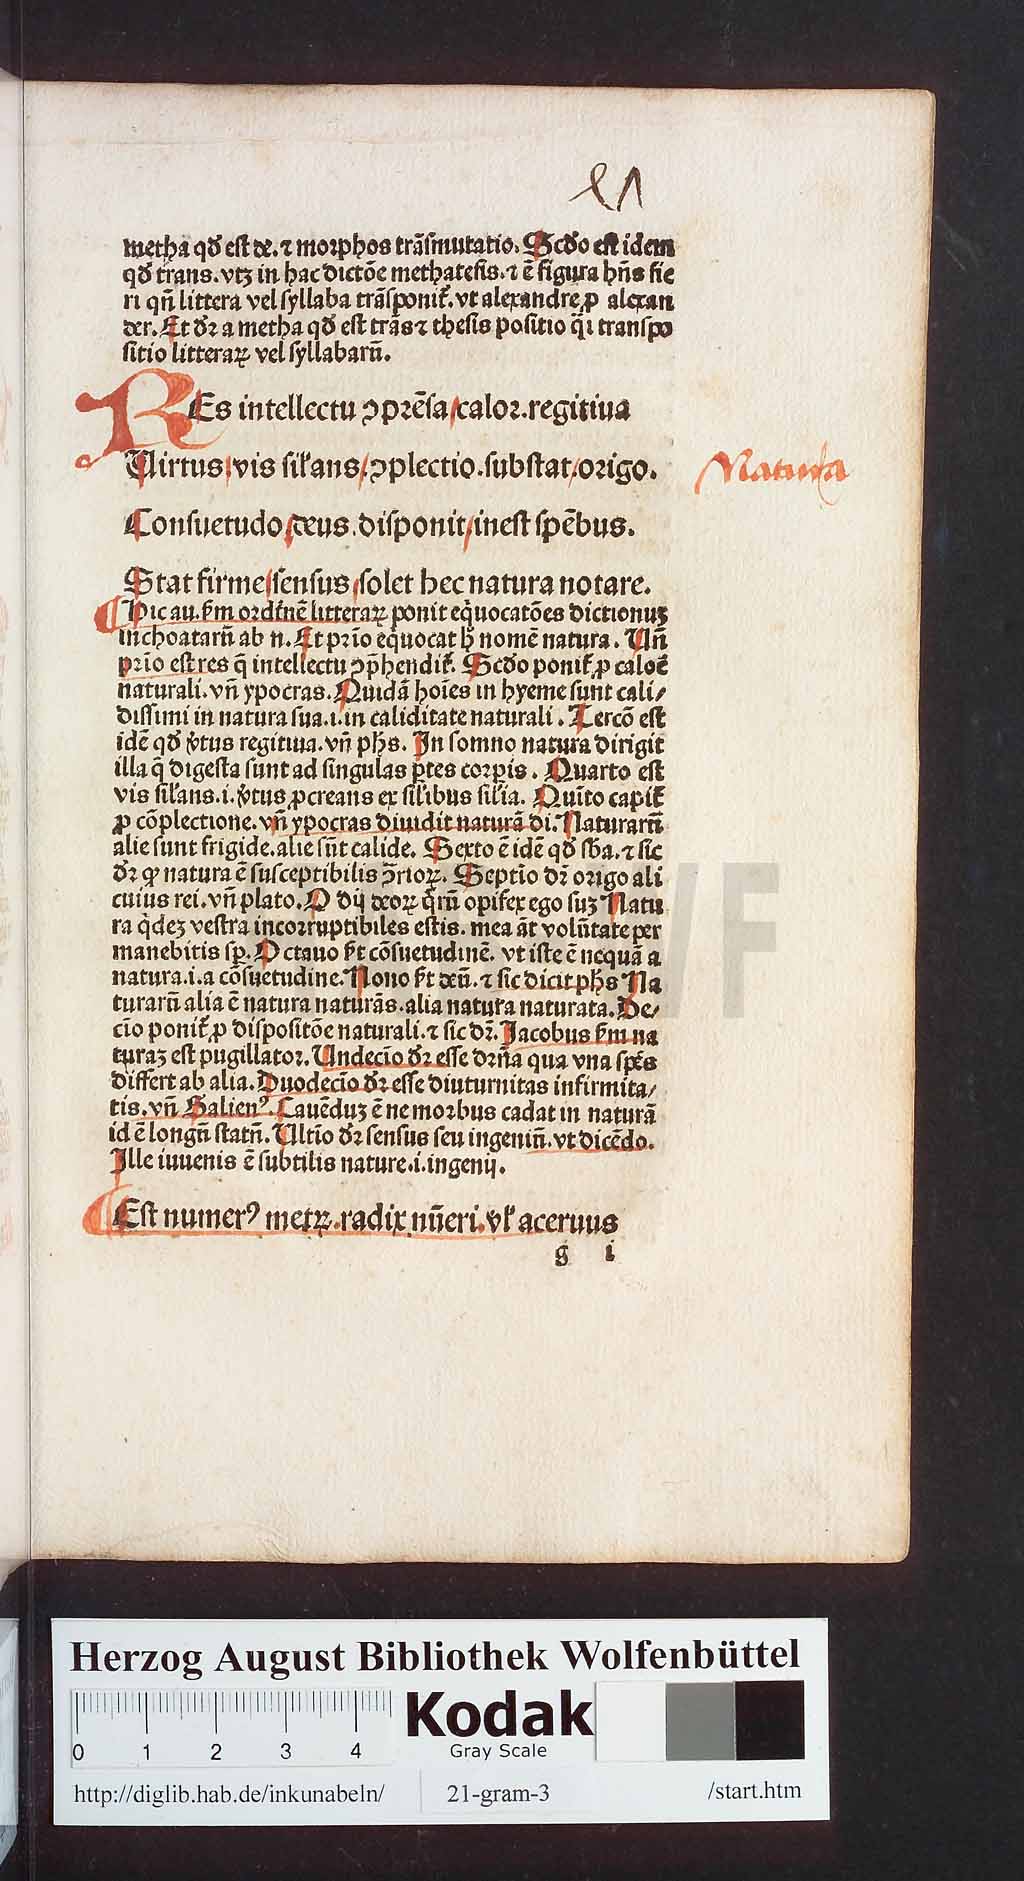 metha qd̛ est de. ⁊ morphos trāsmutatio. Scd̛o est idem
qd̛ trans. vtꝫ in hac dictōe methatesis. ⁊ ē figura hn̄s fie
ri qn̄ littera vel syllaba trāsponit᷑. vt alexandre ꝓ alexan
der. Et d̛r a metha qd̛ est trās ⁊ thesis positio q̄i transpo
sitio litteraꝝ vel syllabarū.
REs intellectu ↄprēsa calor. regitiua
Virtus vis sil̛ans ↄplectio. substat origo.
Natura
Consuetudo deus. disponit inest spēbus.
Stat firme sensus solet hec natura notare.
Hic au. s̛m ordinē litteraꝝ ponit eq̇uocatōes dictionuꝫ
inchoatarū ab n. Et prīo eq̇uocat h̛ nomē natura. Vn̄
prīo est res q̄ intellectu ↄp̄hendit᷑. Scd̛o ponit᷑ ꝓ calorē
naturali. vn̄ ypocras. Quidā hoīes in hyeme sunt cali/
dissimi in natura sua. i. in caliditate naturali. Tercō est
idē qd̛ v̛tus regitiua. vn̄ ph̄s. In somno natura dirigit
illa q̄ digesta sunt ad singulas ꝑtes corꝑis. Quarto est
vis sil̛ans. i. v̛tus ꝓcreans ex sil̛ibus sil̛ia. Quīto capit᷑
ꝓ cōplectione. vn̄ ypocras diuidit naturā di. Naturarū
alie sunt frigide. alie sūt calide. Sexto ē idē qd̛ sb̄a. ⁊ sic
d̛r ꝙ natura ē susceptibilis ↄ̄rioꝝ. Septīo dr̄ origo ali
cuius rei. vn̄ plato. O dij deoꝝ q̄rū opifex ego suꝫ Natu
ra q̇deꝫ vestra incorruptibiles estis. mea āt volūtate per
manebitis sꝑ. Octauo s̛t cōsuetudinē. vt iste ē nequā a
natura. i. a cōsuetudine. Nono s̛t deū. ⁊ sic dicit ph̄s Na
turarū alia ē natura naturās. alia natura naturata. De/
cīo ponit᷑ ꝓ dispositōe naturali. ⁊ sic dr̄. Jacobus s̛m na
turaꝫ est pugillator. Undecīo d̛r esse drn̄a qua vna spēs
differt ab alia. Duodecīo d̛r esse diuturnitas infirmita/
tis. vn̄ Galienꝰ. Cauēduꝫ ē ne morbus cadat in naturā
id ē longū statū. Ultīo d̛r sensus seu ingeniū. vt dicēdo.
Ille iuuenis ē subtilis nature. i. ingenij.
Est numerꝰ metꝝ. radix nūeri. vl̛ aceruus
g i
Herzog August Bibliothek Wolfenbüttel
0 1 2 3 4
Kodak
Gray Scale
http://diglib.hab.de/inkunabeln/ 21-gram-3 /start.htm